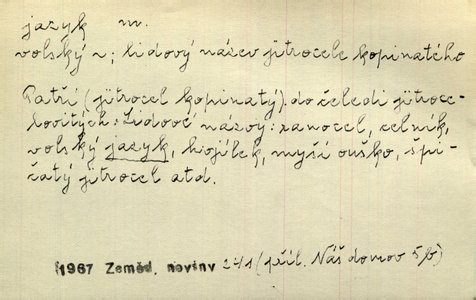 jazyk m.
volský ~; lidový název jitrocele kopinatého
Patří (jitrocel kopinatý) do čeledi jitroce-
lovitých. Lidové názvy: ranocel, celník,
volský jazyk, hojílek, myší ouško, špi-
čatý jitrocel atd.
1967 Zeměd. noviny 241 (příl. Náš domov 5b)